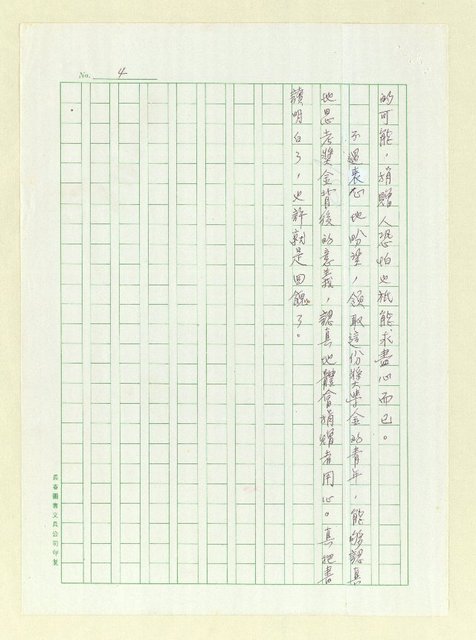 No. 4
的可能，捐贈人恐怕也祇能求盡心而已。
不過衷心地盼望，領取這份獎學金的青年，能夠認真
地思考獎金背後的意義，認真地體會捐贈者用心。真把書
讀明白了，也許就是回饋了。
長春圖書文具公司印製